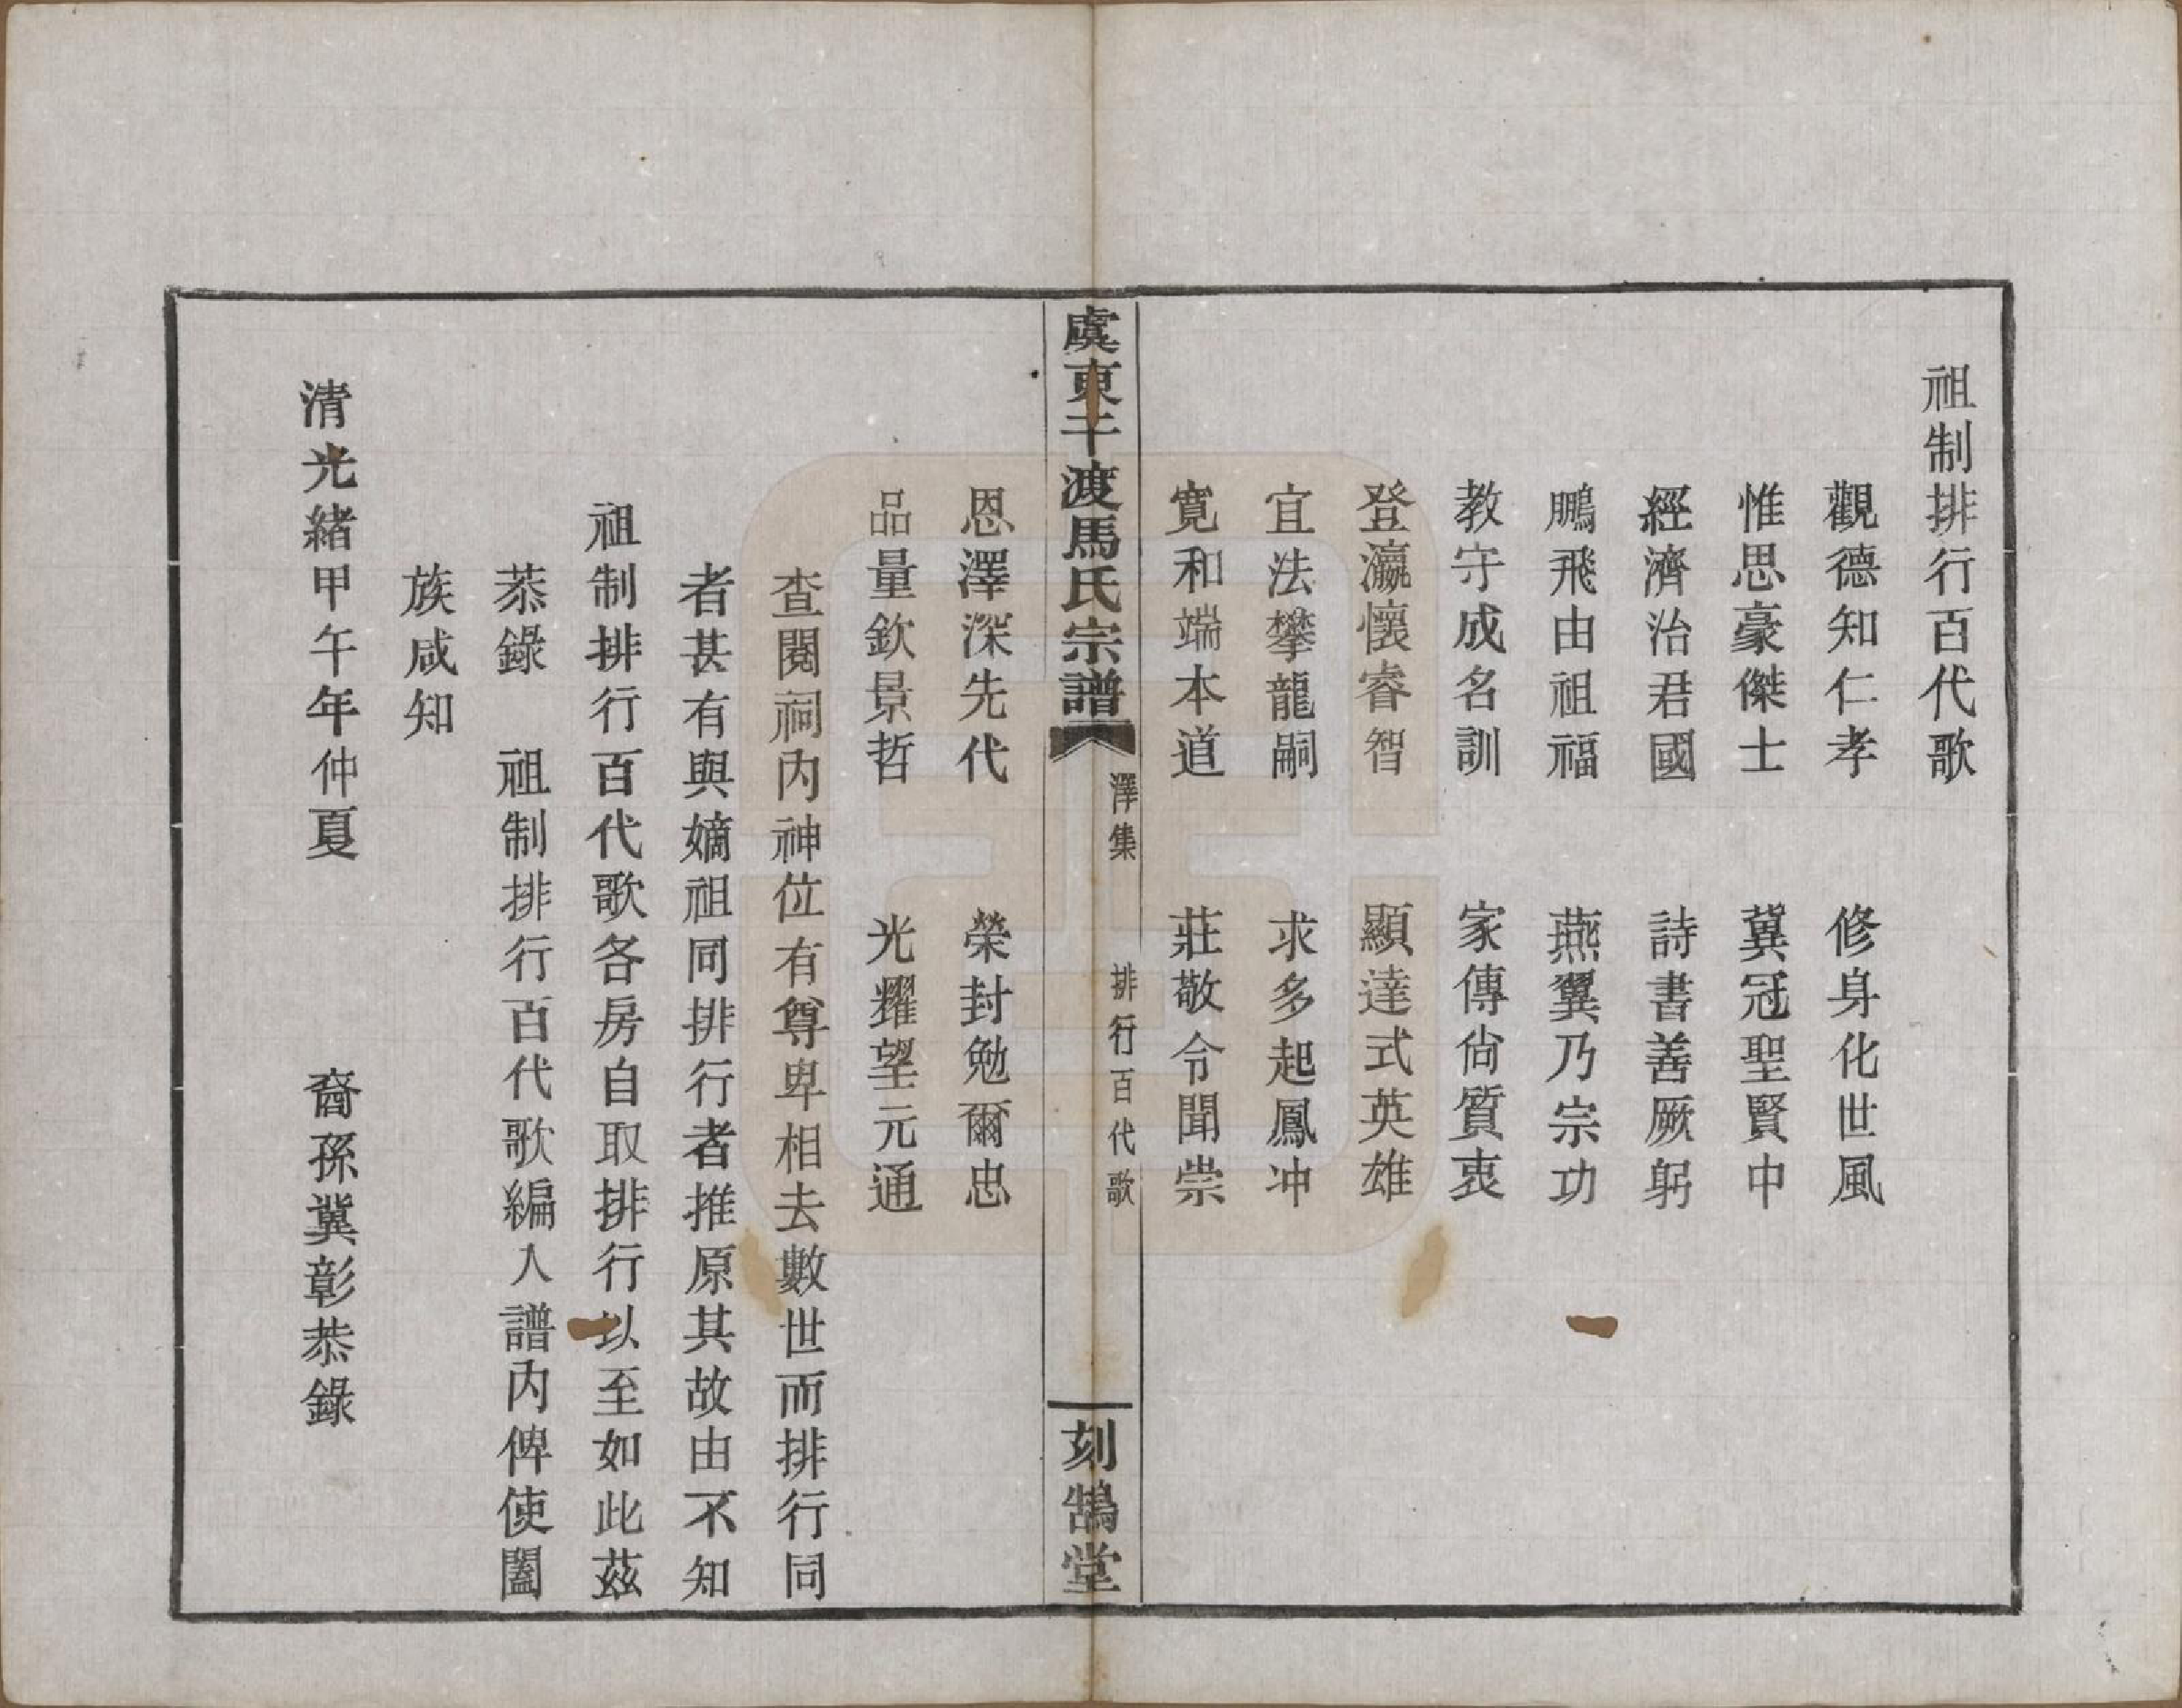 祖制排行百代歌
觀德知仁孝　修身化世風
惟思豪傑士　冀冠聖賢中
經濟治君國　詩書善厥躬
鵬飛由祖福　燕翼乃宗功
教守成名訓　家傳尙質衷
登瀛懷睿智　顯達式英雄
宜法攀龍嗣　求多起鳳冲
寬和端本道　莊敬令聞崇
虞東干渡馬氏宗譜　澤集　排行百代歌　刻鵠堂
恩澤深先代　榮封勉爾忠
品量欽景哲　光耀望元通
查閱祠內神位有尊卑相去數世而排行同
者甚有與嫡祖同排行者推原其故由不知
祖制排行百代歌各房自取排行以至如此茲
恭錄　祖制排行百代歌編入譜內俾使闔
族咸知
清光緒甲午年仲夏　裔孫冀彰恭錄